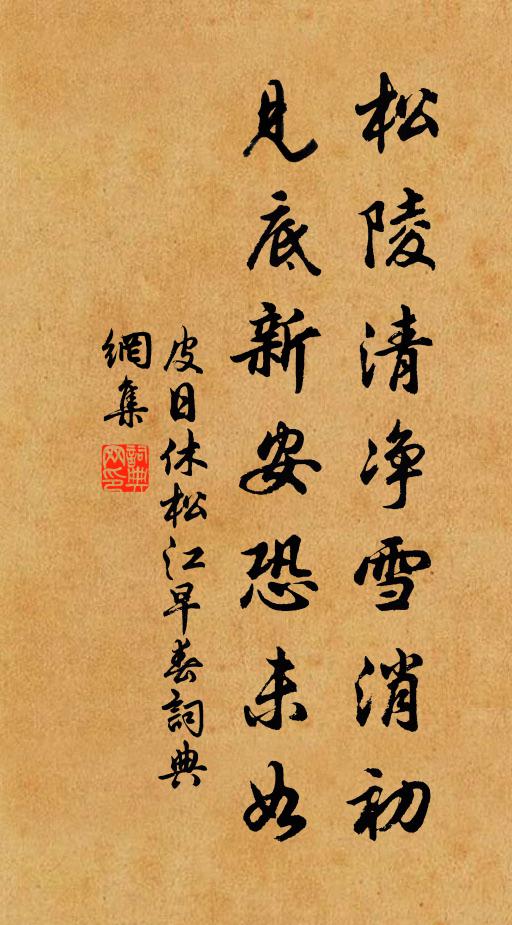 松陵清净雪消初
见底新安恐未如
皮日休松江早春詞典
網集
詞典網印